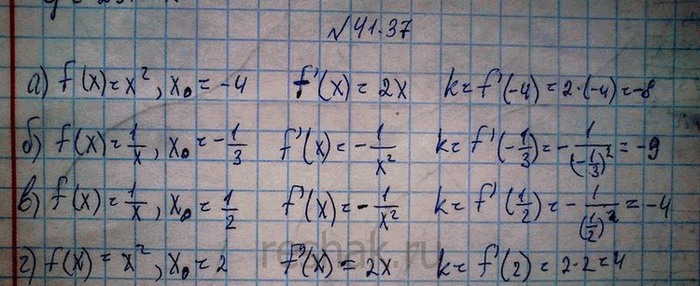 №41.37
а) f(x) = x², x₀ = -4 f'(x) = 2x k = f'(-4) = 2·(-4) = -8
б) f(x) = 1/x, x₀ = -1/3 f'(x) = -1/x² k = f'(-1/3) = -1/(-1/3)² = -9
в) f(x) = 1/x, x₀ = 1/2 f'(x) = -1/x² k = f'(1/2) = -1/(1/2)² = -4
г) f(x) = x², x₀ = 2 f'(x) = 2x k = f'(2) = 2·2 = 4